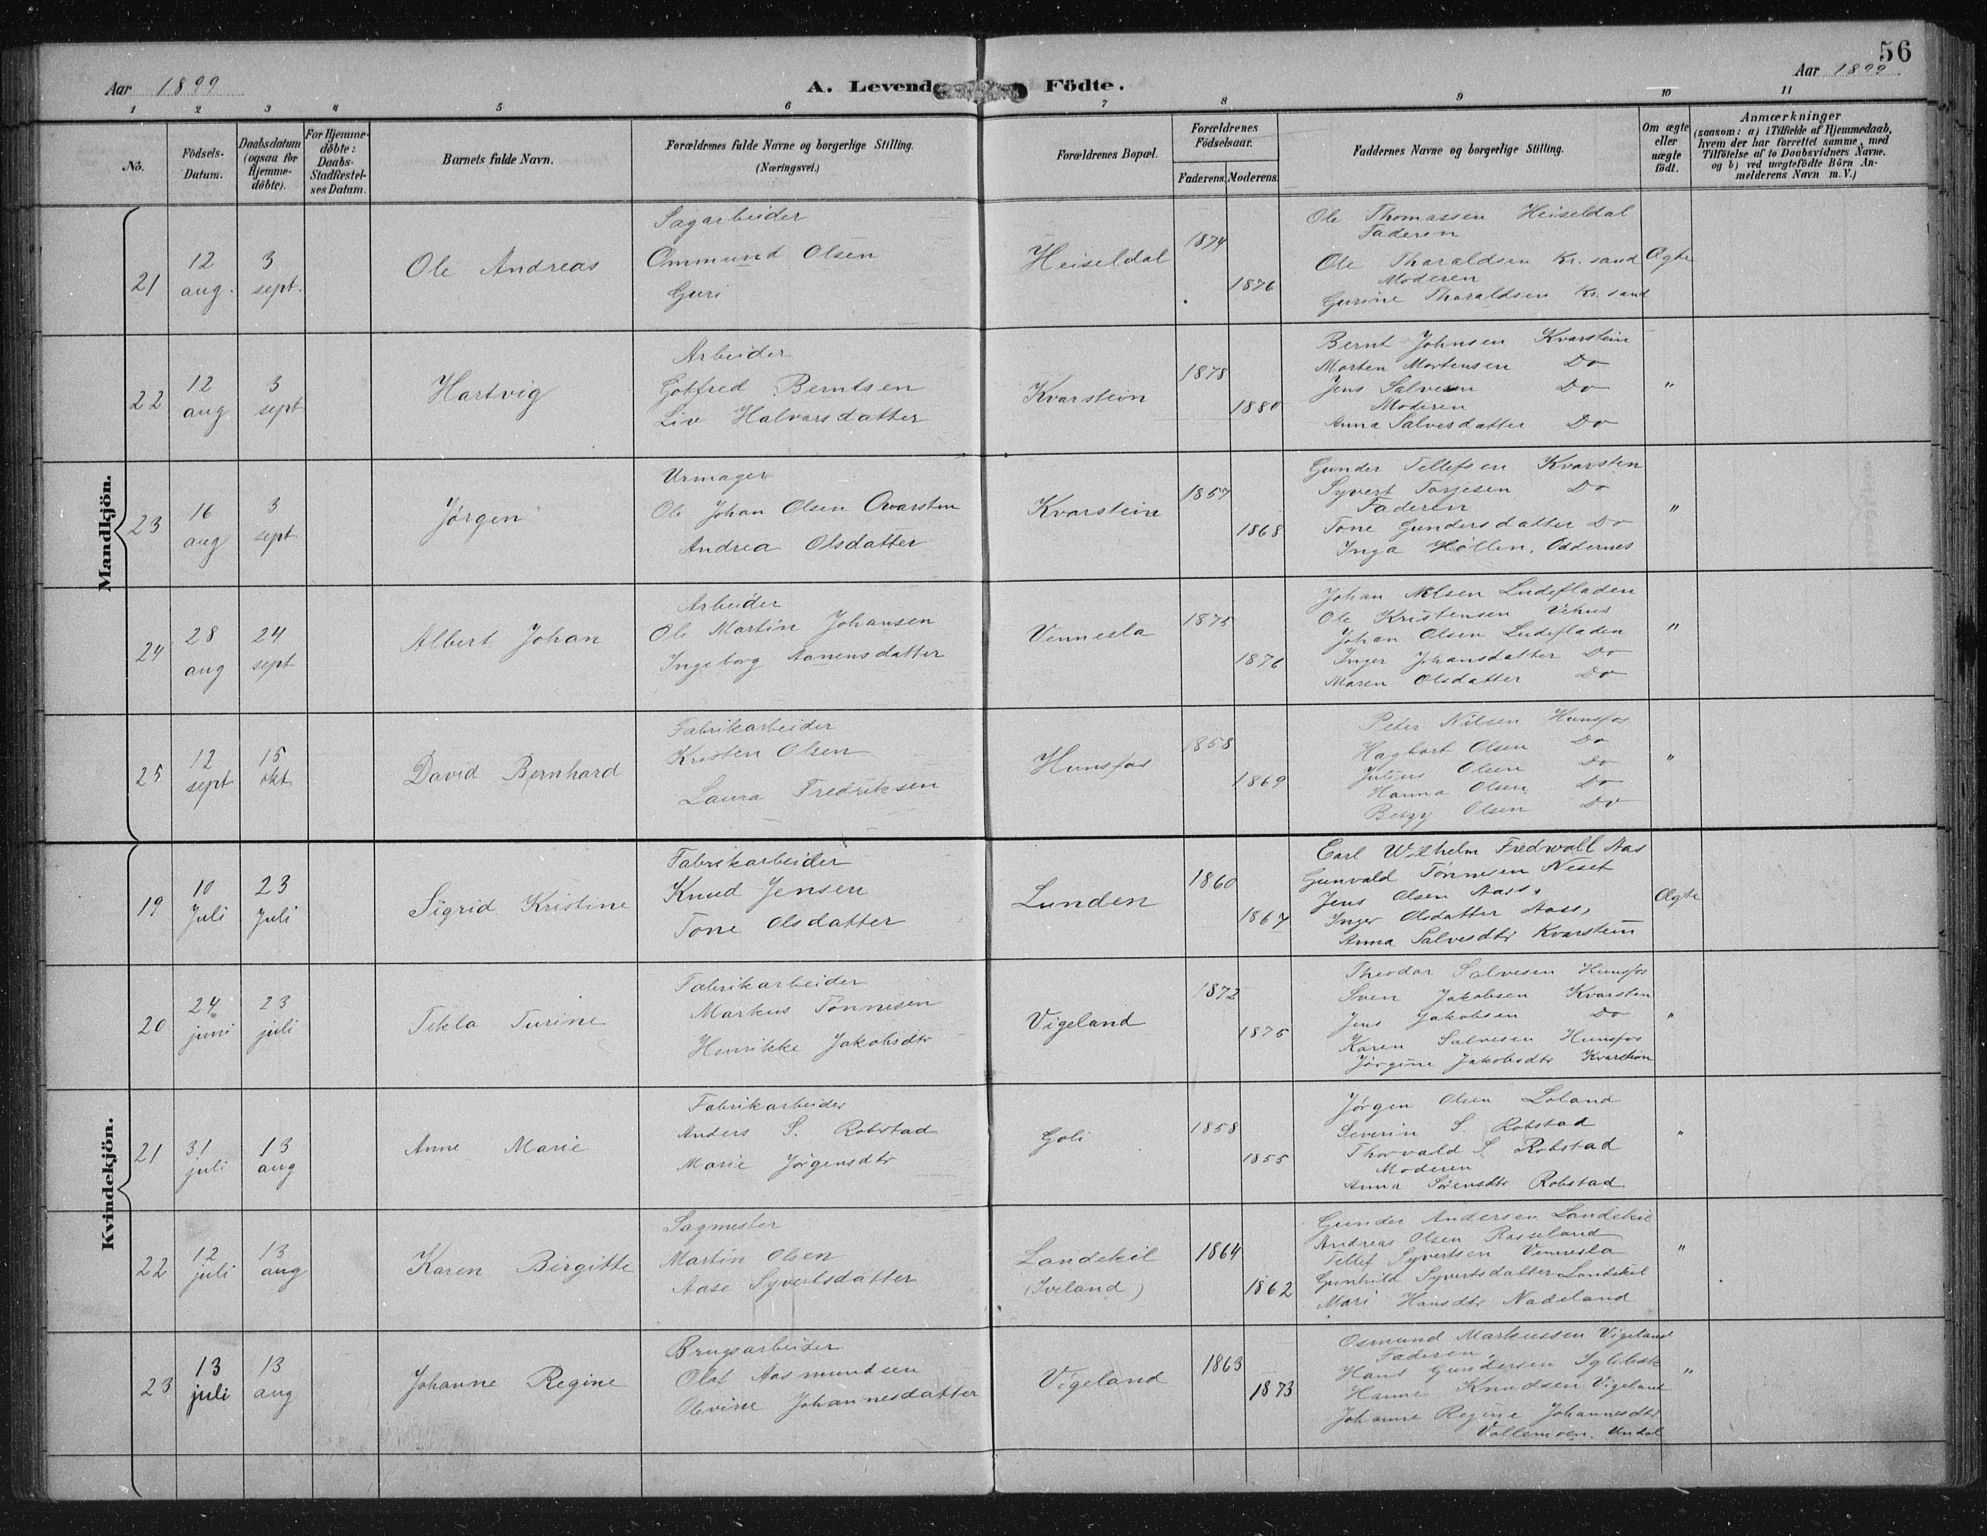 56
Aar 1899
A. Levende Födte.
Aar 1899
1 2 3 4 5 6 7 8 9 10 11
No.
Födsels-Datum.
Daabsdatum (ogsaa for Hjemmedöbte).
For Hjemmedöbte: Daabs-Stadfæstelses Datum.
Barnets fulde Navn.
Forældrenes fulde Navne og borgerlige Stilling.
(Næringsvei.)
Forældrenes Bopæl.
Forældrenes Födselsaar.
Faderens. Moderens.
Faddernes Navne og borgerlige Stilling.
Om ægte eller uægte födt.
Anmærkninger
(saasom: a) i Tilfælde af Hjemmedaab, hvem der har forrettet samme, med Tilföielse af to Daabsvidners Navne, og b) ved uægtefödte Börn Anmelderens Navn m. V.)
Mandkjön.
21
12 aug.
3 sept.
Ole Andreas
Sagarbeider
Ommund Olsen
Guri
Heiseldal
1874
1876
Ole Thomassen Heiseldal
Faderen
Ole Tharaldsen Kr.sand
Moderen
Gurine Tharaldsen Kr.sand
Ægte
22
12 aug
3 sept
Hartvig
Arbeider
Gotfred Berntsen
Liv Halvarsdatter
Kvarstein
1878
1880
Bernt Johnsen Kvarstein
Morten Mortensen Do
Jens Salvesen Do
Moderen
Anna Salvesdatter Do
"
23
16 aug
3 sept
Jørgen
Urmager
Ole Johan Olsen Qvarsten
Andrea Olsdatter
Kvarstein
1857
1868
Gunder Tellefsen Kvarsten
Syvert Torjesen Do
Faderen
Tone Gundersdatter Do
Inga Høllen, Oddernes
"
24
28 aug
24 sept
Albert Johan
Arbeider
Ole Martin Johansen
Ingeborg Aanensdatter
Vennesla
1875
1876
Johan Nilsen Ludefladen
Ole Kristensen Vehus
Johan Olsen Ludefladen
Inger Johansdatter Do
Maren Olsdatter Do
"
25
12 sept
15 okt
David Bernhard
Fabrikarbeider
Kristen Olsen
Laura Fredriksen
Hunsfos
1858
1869
Peter Nilsen Hunsfos
Hagbart Olsen Do
Julius Olsen Do
Hanna Olsen Do
Betzy Olsen Do
"
Kvindekjön.
19
10 Juli
23 Juli
Sigrid Kristine
Fabrikarbeider
Knud Jensen
Tone Olsdatter
Lunden
1860
1867
Carl Wilhelm Fredwall Aas
Gunvald Tønnesen Neset
Jens Olsen Aas,
Inger Olsdatter Aas,
Anna Salvesdtr Kvarstein
Ægte
20
24 juni
23 juli
Tekla Turine
Fabrikarbeider
Markus Tønnesen
Henrikke Jakobsdtr
Vigeland
1872
1875
Theodor Salvesen Hunsfos
Sven Jakobsen Kvarsten
Jens Jakobsen Do
Karen Salvesen Hunsfos
Jørgine Jakobsdtr Kvarstein
"
21
31 juli
13 aug
Anne Marie
Fabrikarbeider
Anders S. Robstad
Marie Jørgensdtr
Goli
1858
1855
Jørgen Olsen Loland
Severin S. Robstad
Thorvald S. Robstad
Moderen
Anna Sørensdtr Robstad
"
22
12 juli
13 aug
Karen Birgitte
Sagmester
Martin Olsen
Aase Syvertsdatter
Landekil
(Iveland)
1864
1862
Gunder Andersen Landekil
Andreas Olsen Rosseland
Tellef Syvertsen Vennesla
Gunhild Syvertsdatter Landekil
Mari Hansdtr Nadeland
"
23
13 juli
13 aug
Johanne Regine
Brugsarbeider
Olaf Aasmundsen
Olevine Johannesdatter
Vigeland
1863
1873
Osmund Markussen Vigeland
Faderen,
Hans Gundersen
Hanne Knudsen Vigeland
Johanne Regine Johannesdtr
Vallemoen, Undal
"